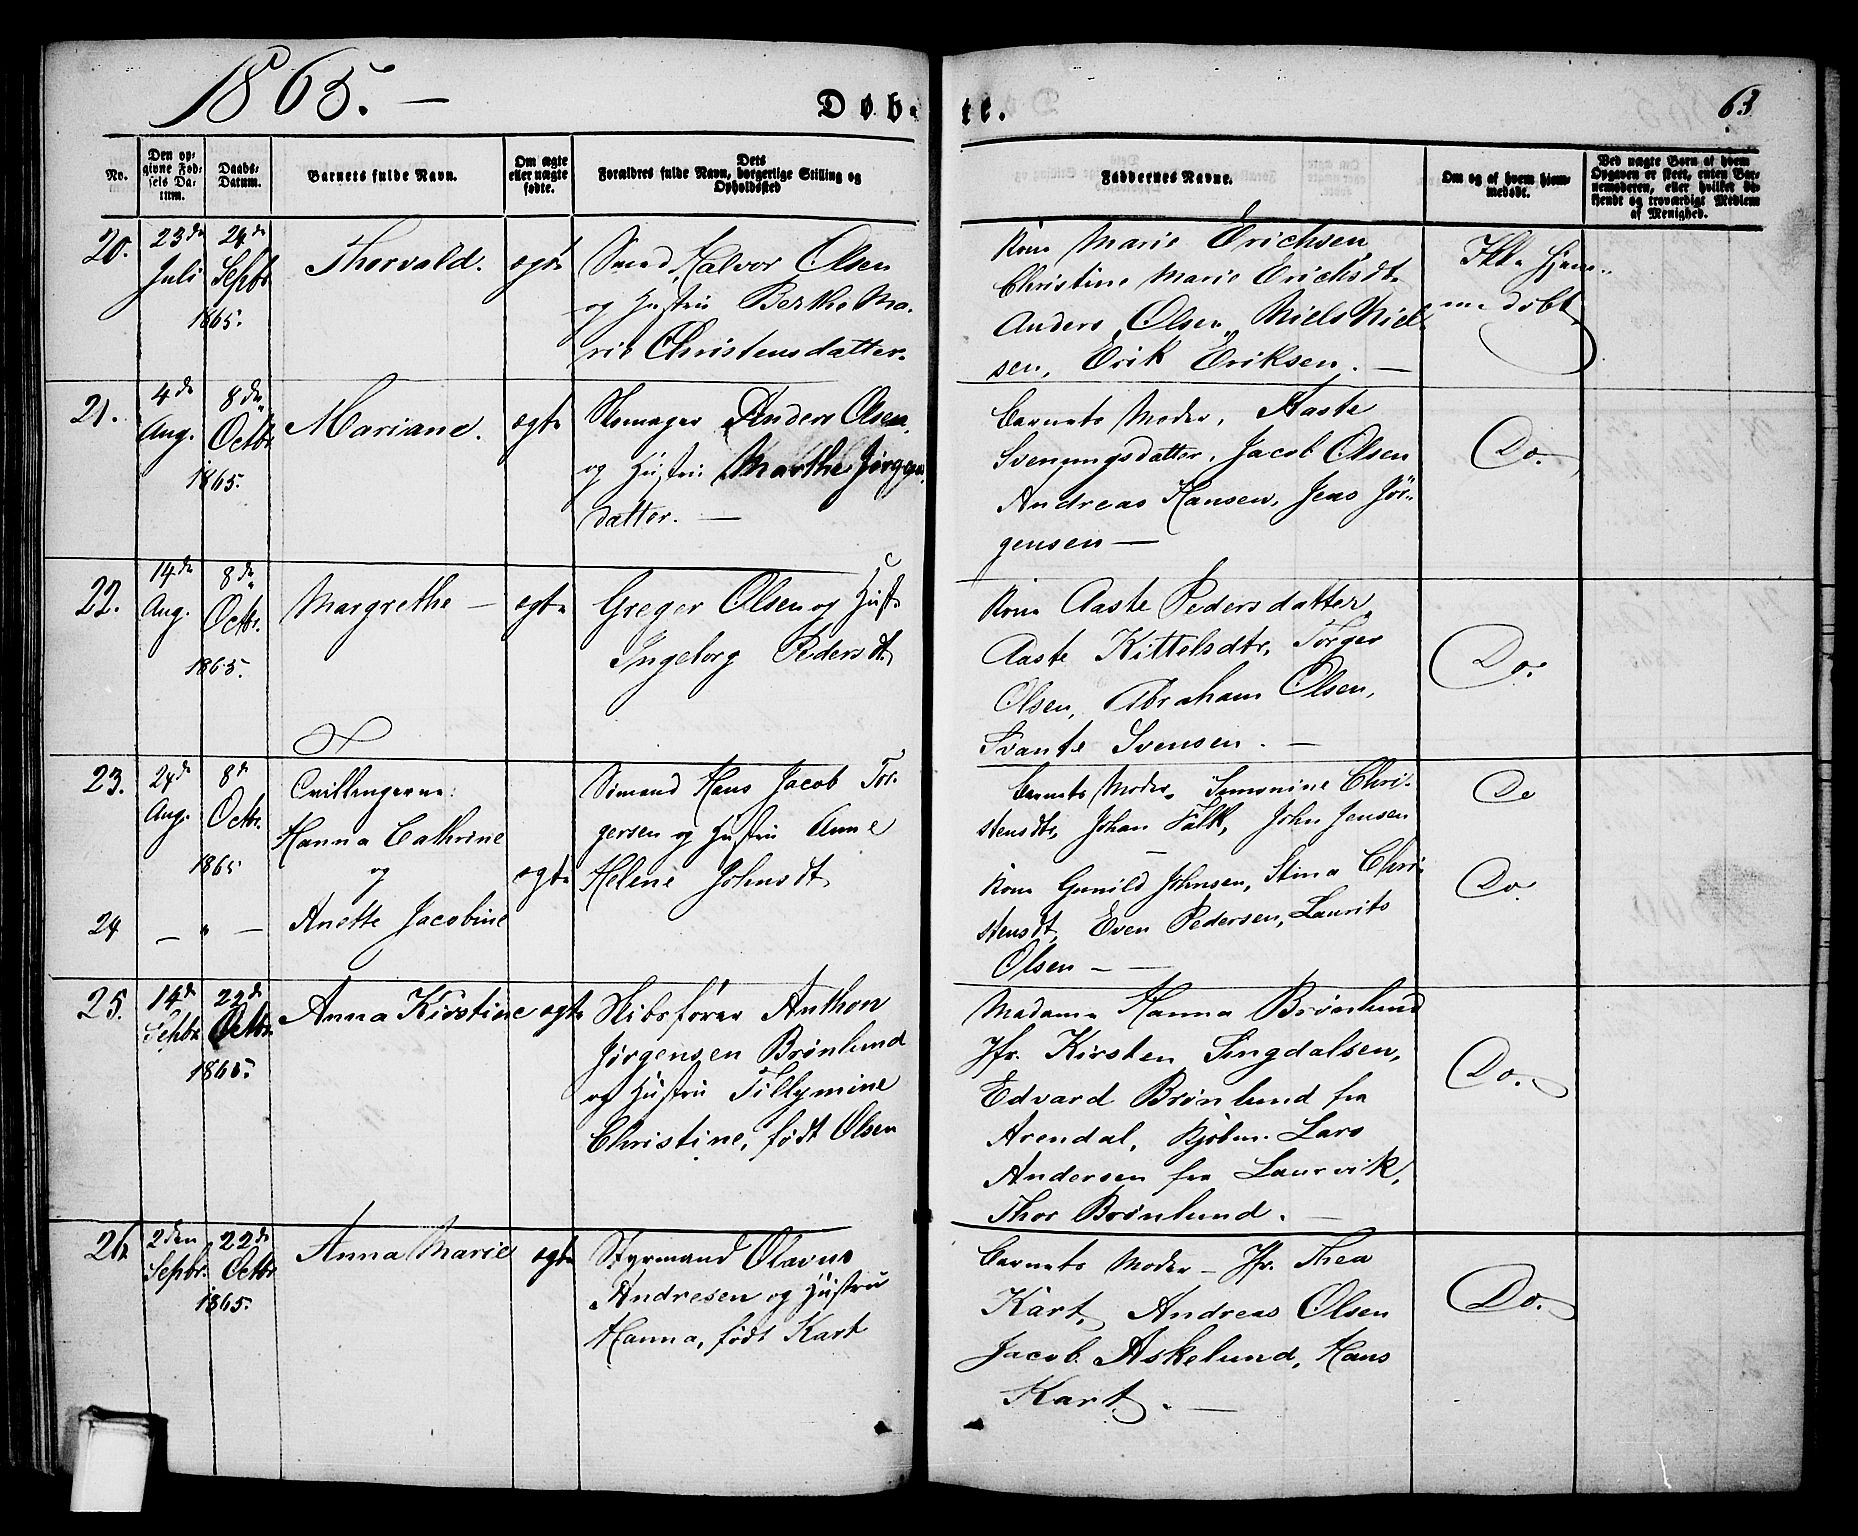 1865. —
Døb-
te.
63
No.
Den op-
givne Fød-
sels Da-
tum.
Daabs-
Datum.
Barnets fulde Navn.
Om ægte
eller uægte
fødte.
Dets
Forældres fulde Navn, borgerlige Stilling og
Opholdssted
Faddernes Navne.
Om og af hvem hjem-
medøbt.
Ved uægte Børn af hvem
Opgaven er skeet, enten Bar-
nemoderen, eller hvilket be-
kjendt og troværdigt Medlem
af Menighed.
20.
23de
Juli
24de
Septbr
1865.
Thorvald.
ægte
Smed, Halvor Olsen
og Hustru Berthe Ma-
rie Christensdatter.
Kone Marie Erichsen,
Christine Marie Ericksdt.
Anders Olsen, Niels Niel-
sen, Erik Eriksen. —
Ikke hjem-
me døbt
21.
4de
Aug.
8de
Octbr
1865.
Mariane.
ægte
Skomager Anders Olsen,
og Hustru Marthe Jørgens
datter. —
Barnets Moder, Aaste
Svenungsdatter, Jacob Olsen
Andreas Hansen, Jens Jör-
gensen —
Do.
22.
14de
Aug.
8de
Octbr.
1865.
Margrethe —
ægte
Greger Olsen og Hust.
Ingeborg Pedersdt.
Kone Aaste Pedersdatter,
Aaste Kittelsdtr, Torger
Olsen, Abraham Olsen,
Svante Svensen. —
Do.
23.
24d
Aug.
8d
Octbr.
1865
Tvillingerne:
Hanna Cathrine
og
ægte
Sömand Hans Jacob Tor-
gersen og Hustru Anne
Helene Johnsdt.
Barnets Moder, Simonine Chri-
stensdt, Johan Falk, John Jensen
—
Do
24
— " —
Anette Jacobine
Kone Gunild Johnsen, Stina Chri-
stensdt, Even Pedersen, Laurits
Olsen — —
Do.
25.
14d
Septbr
22d
Octbr.
1865.
Anna Kirstine
ægte
Skibsfører Anthon
Jørgensen Brönlund
og Hustru Tillymine
Christine, født Olsen
Madame Hanna Brönlund
Jfr. Kirsten Lingdalsen,
Edvard Brönlund fra
Arendal, Kjöbm. Lars
Andersen fra Laurvik,
Thor Brönlund. —
Do.
26.
2den
Septbr.
22de
Octbr
1865.
Anna Marie
ægte
Styrmand Olavus
Andresen og Hustru
Hanna, født Kart
Barnets Moder — Jfr. Thea
Kart, Andreas Olsen
Jacob Askelund, Hans
Kart. —
Do.